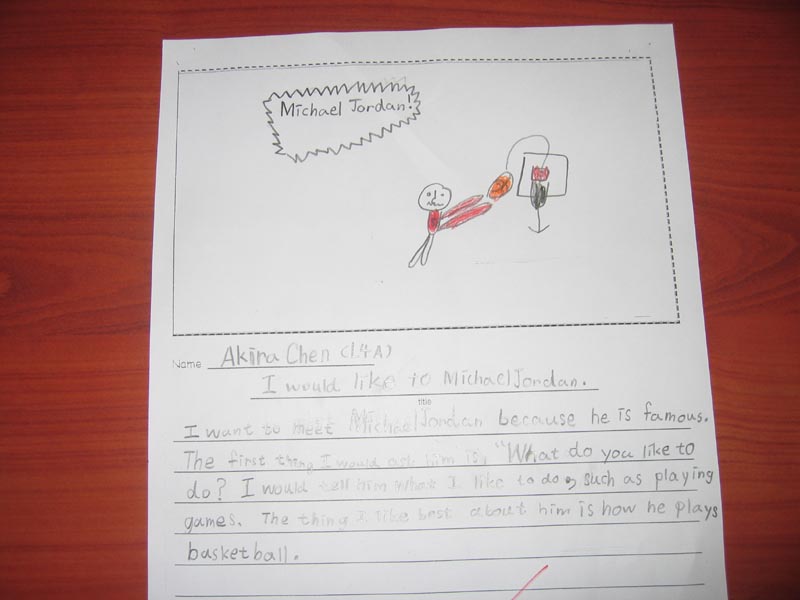 Michael Jordan!
Name Akira Chen (L4A)
I would like to Michael Jordan.
title
I want to meet Michael Jordan because he is famous.
The first thing I would ask him is, "What do you like to
do? I would tell him what I like to do, such as playing
games. The thing I like best about him is how he plays
basketball.